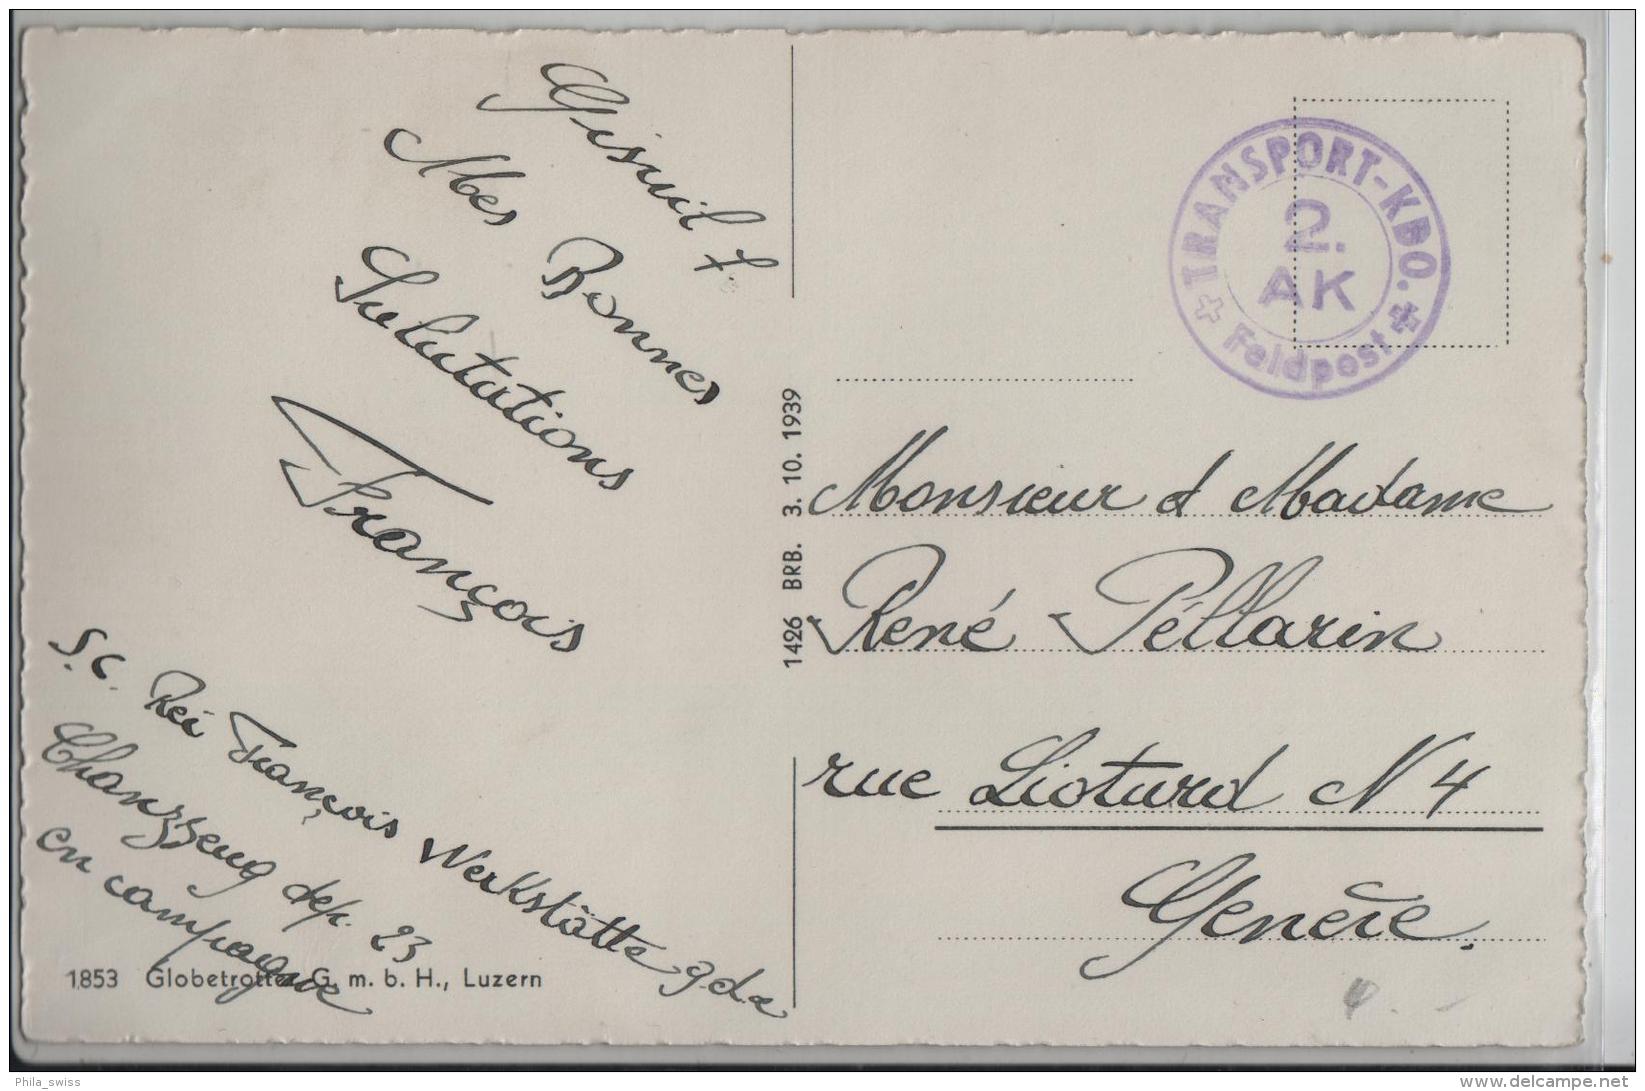 Mes Bonnes
Salutations
François
S.C. Rei François Werkstätte
dep. 23
en campagne
1853 Globetrotter G. m. b. H., Luzern
1426 BRB. 3. 10. 1939
TRANSPORT-KDO.
2.
AK
Feldpost
Monsieur et Madame
René Péllarin
rue Liotard N 4
Genève.
Phila_swiss
delcampe.net